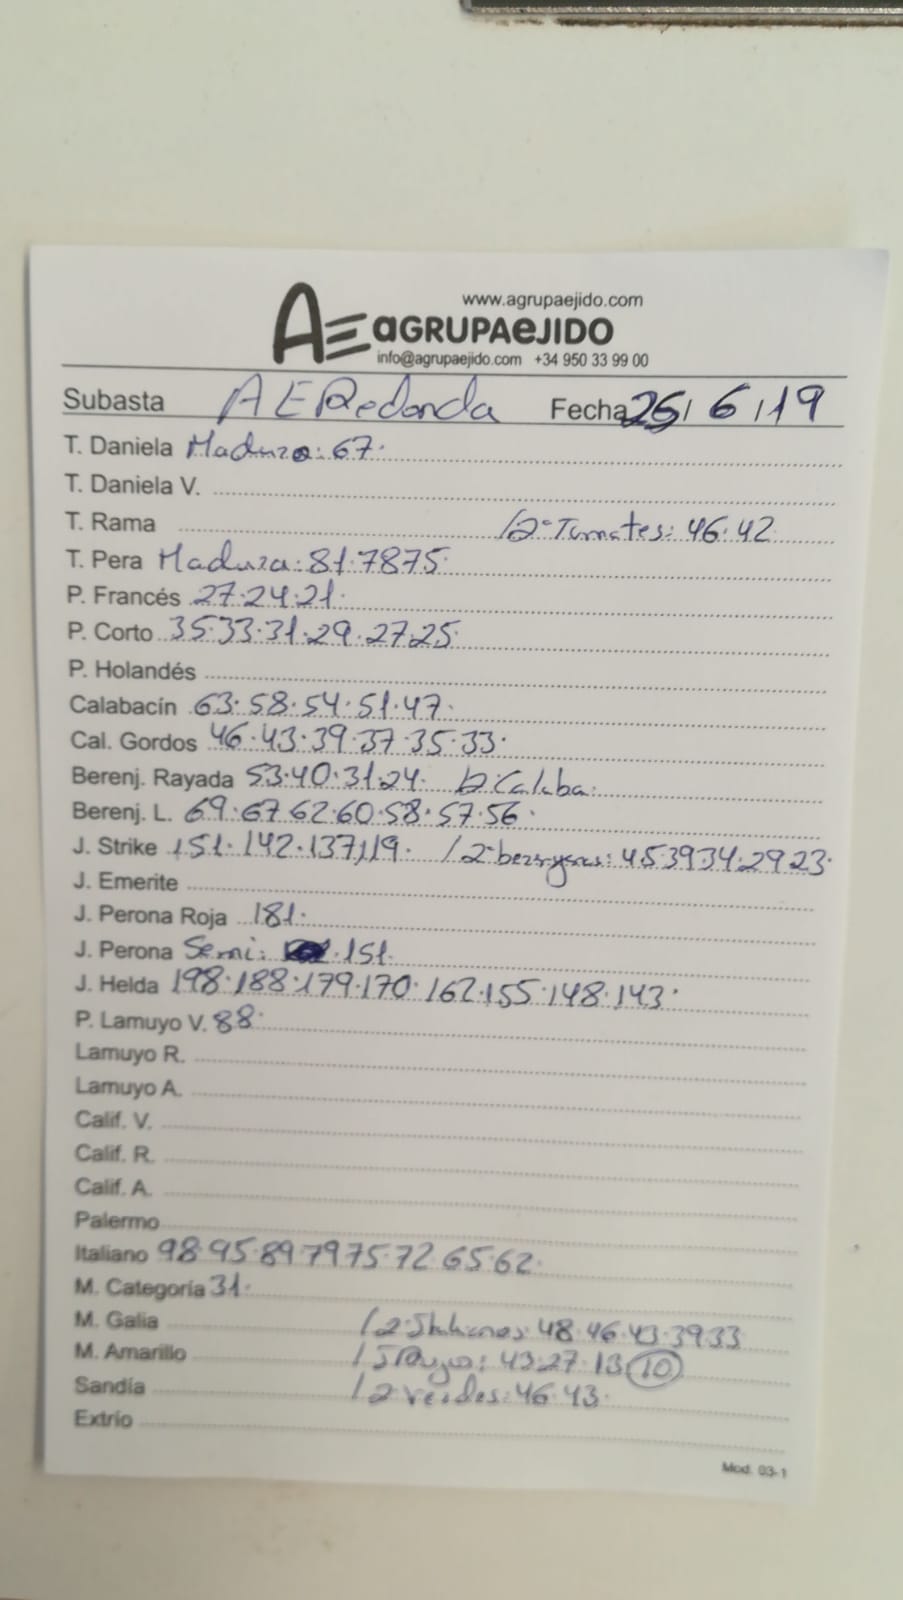 www.agrupaejido.com
AE aGRUPAeJIDO
info@agrupaejido.com +34 950 33 99 00
Subasta AERedonda Fecha 25/ 6 /19
T. Daniela Maduza: 67.
T. Daniela V.
T. Rama /2ª Tomates: 46.42
T. Pera Maduza: 81.7875.
P. Francés 27.24.21.
P. Corto 35.33.31.29.27.25.
P. Holandés
Calabacín 63.58.54.51.47.
Cal. Gordos 46.43.39.37.35.33.
Berenj. Rayada 53.40.31.24. D.Calaba.
Berenj. L. 69.67.62.60.58.57.56.
J. Strike 151.142.137.119. /2ª : 45.39.34.29.23.
J. Emerite
J. Perona Roja 181.
J. Perona Semi: .151.
J. Helda 198.188.179.170.162.155.148.143.
P. Lamuyo V. 88.
Lamuyo R.
Lamuyo A.
Calif. V.
Calif. R.
Calif. A.
Palermo
Italiano 98.95.89.79.75.72.65.62.
M. Categoría 31.
M. Galia /2ª : 48.46.43.39.33
M. Amarillo : 43.27.13 10
Sandía /2 verdes: 46.43.
Extrío
Mod. 03-1